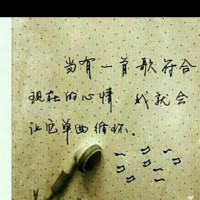 当有一首歌符合
现在的心情 我就会
让它单曲循环..